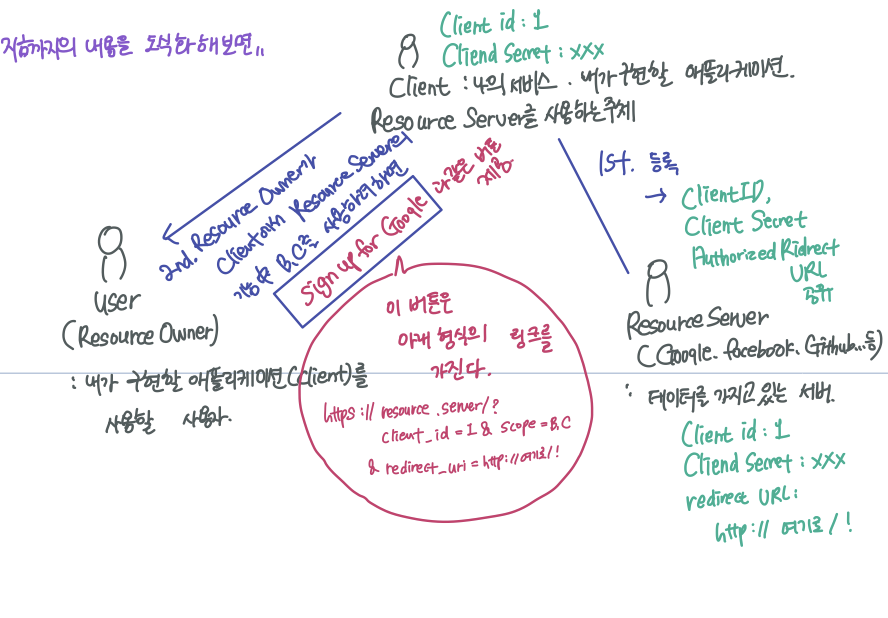 지금까지의 내용을 도식화해보면,,
Client id : 1
Cliend Secret : xxx
Client : 나의 서비스. 내가 구현할 애플리케이션.
Resource Server를 사용하는 주체
2nd. Resource Owner가
Client에서 Resource Server의
기능 中 B,C를 사용하려 하면
Sign up for Google
과 같은 버튼
제공.
1st. 등록
→ ClientID,
Client Secret
Authorized Ridrect
URL
공유
user
(Resource Owner)
: 내가 구현할 애플리케이션(Client)를
사용할 사용자.
이 버튼은
아래 형식의 링크를
가진다.
https://resource.server/?
client_id = 1 & scope = B,C
& redirect_uri = http://여기로/!
Resource Server
(Google. facebook. Github...등)
: 데이터를 가지고 있는 서버.
Client id : 1
Cliend Secret : xxx
redirect URL :
http://여기로/!